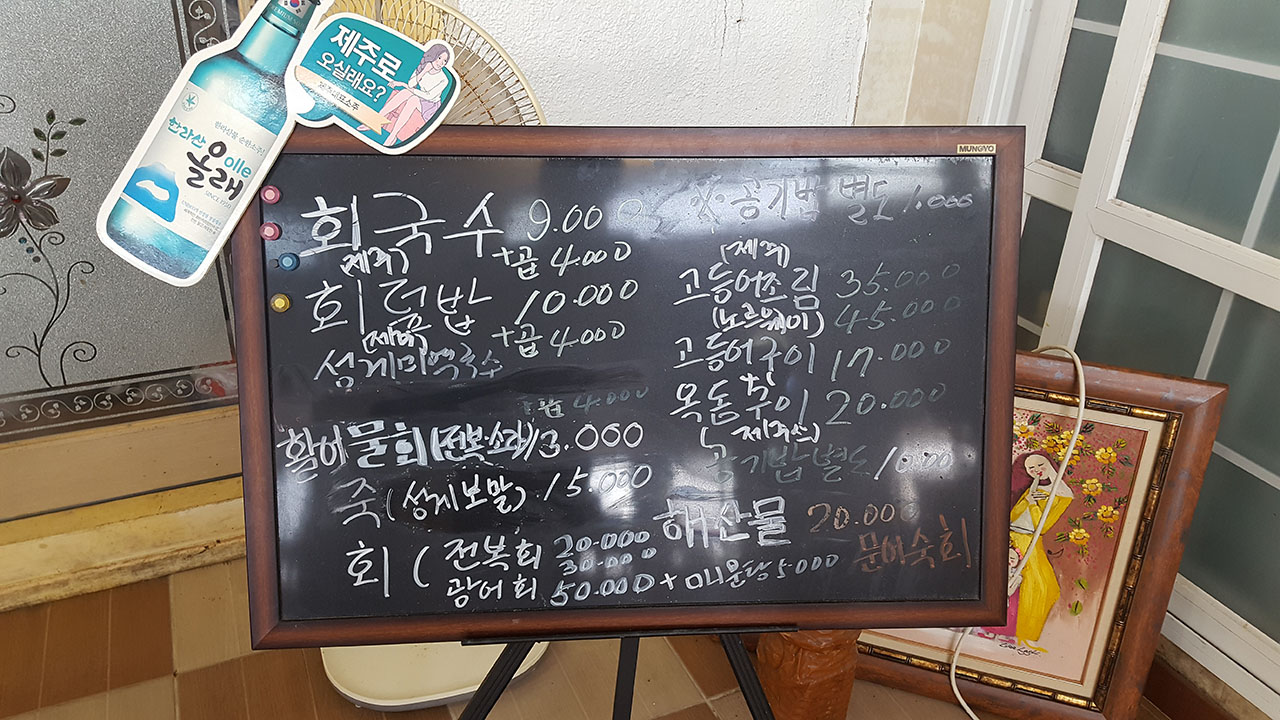 제주로
오실래요?
한라산
올래
olle
MUNGYO
회국수 9.000
(제주) +곱 4.000
회덮밥 10.000
(제주) +곱 4.000
성게미역국수
곱 4.000
활어물회(전복소라) 13.000
죽(성게보말) 15.000
회( 전복회 20.000
30.000
광어회 50.000 + 매운탕 5000
※공기밥 별도 1.000
(제주)
고등어조림 35.000
(노르웨이) 45.000
고등어구이 17.000
옥돔구이 20.000
제주산)
공기밥별도 1.000
해산물 20.000
문어숙회